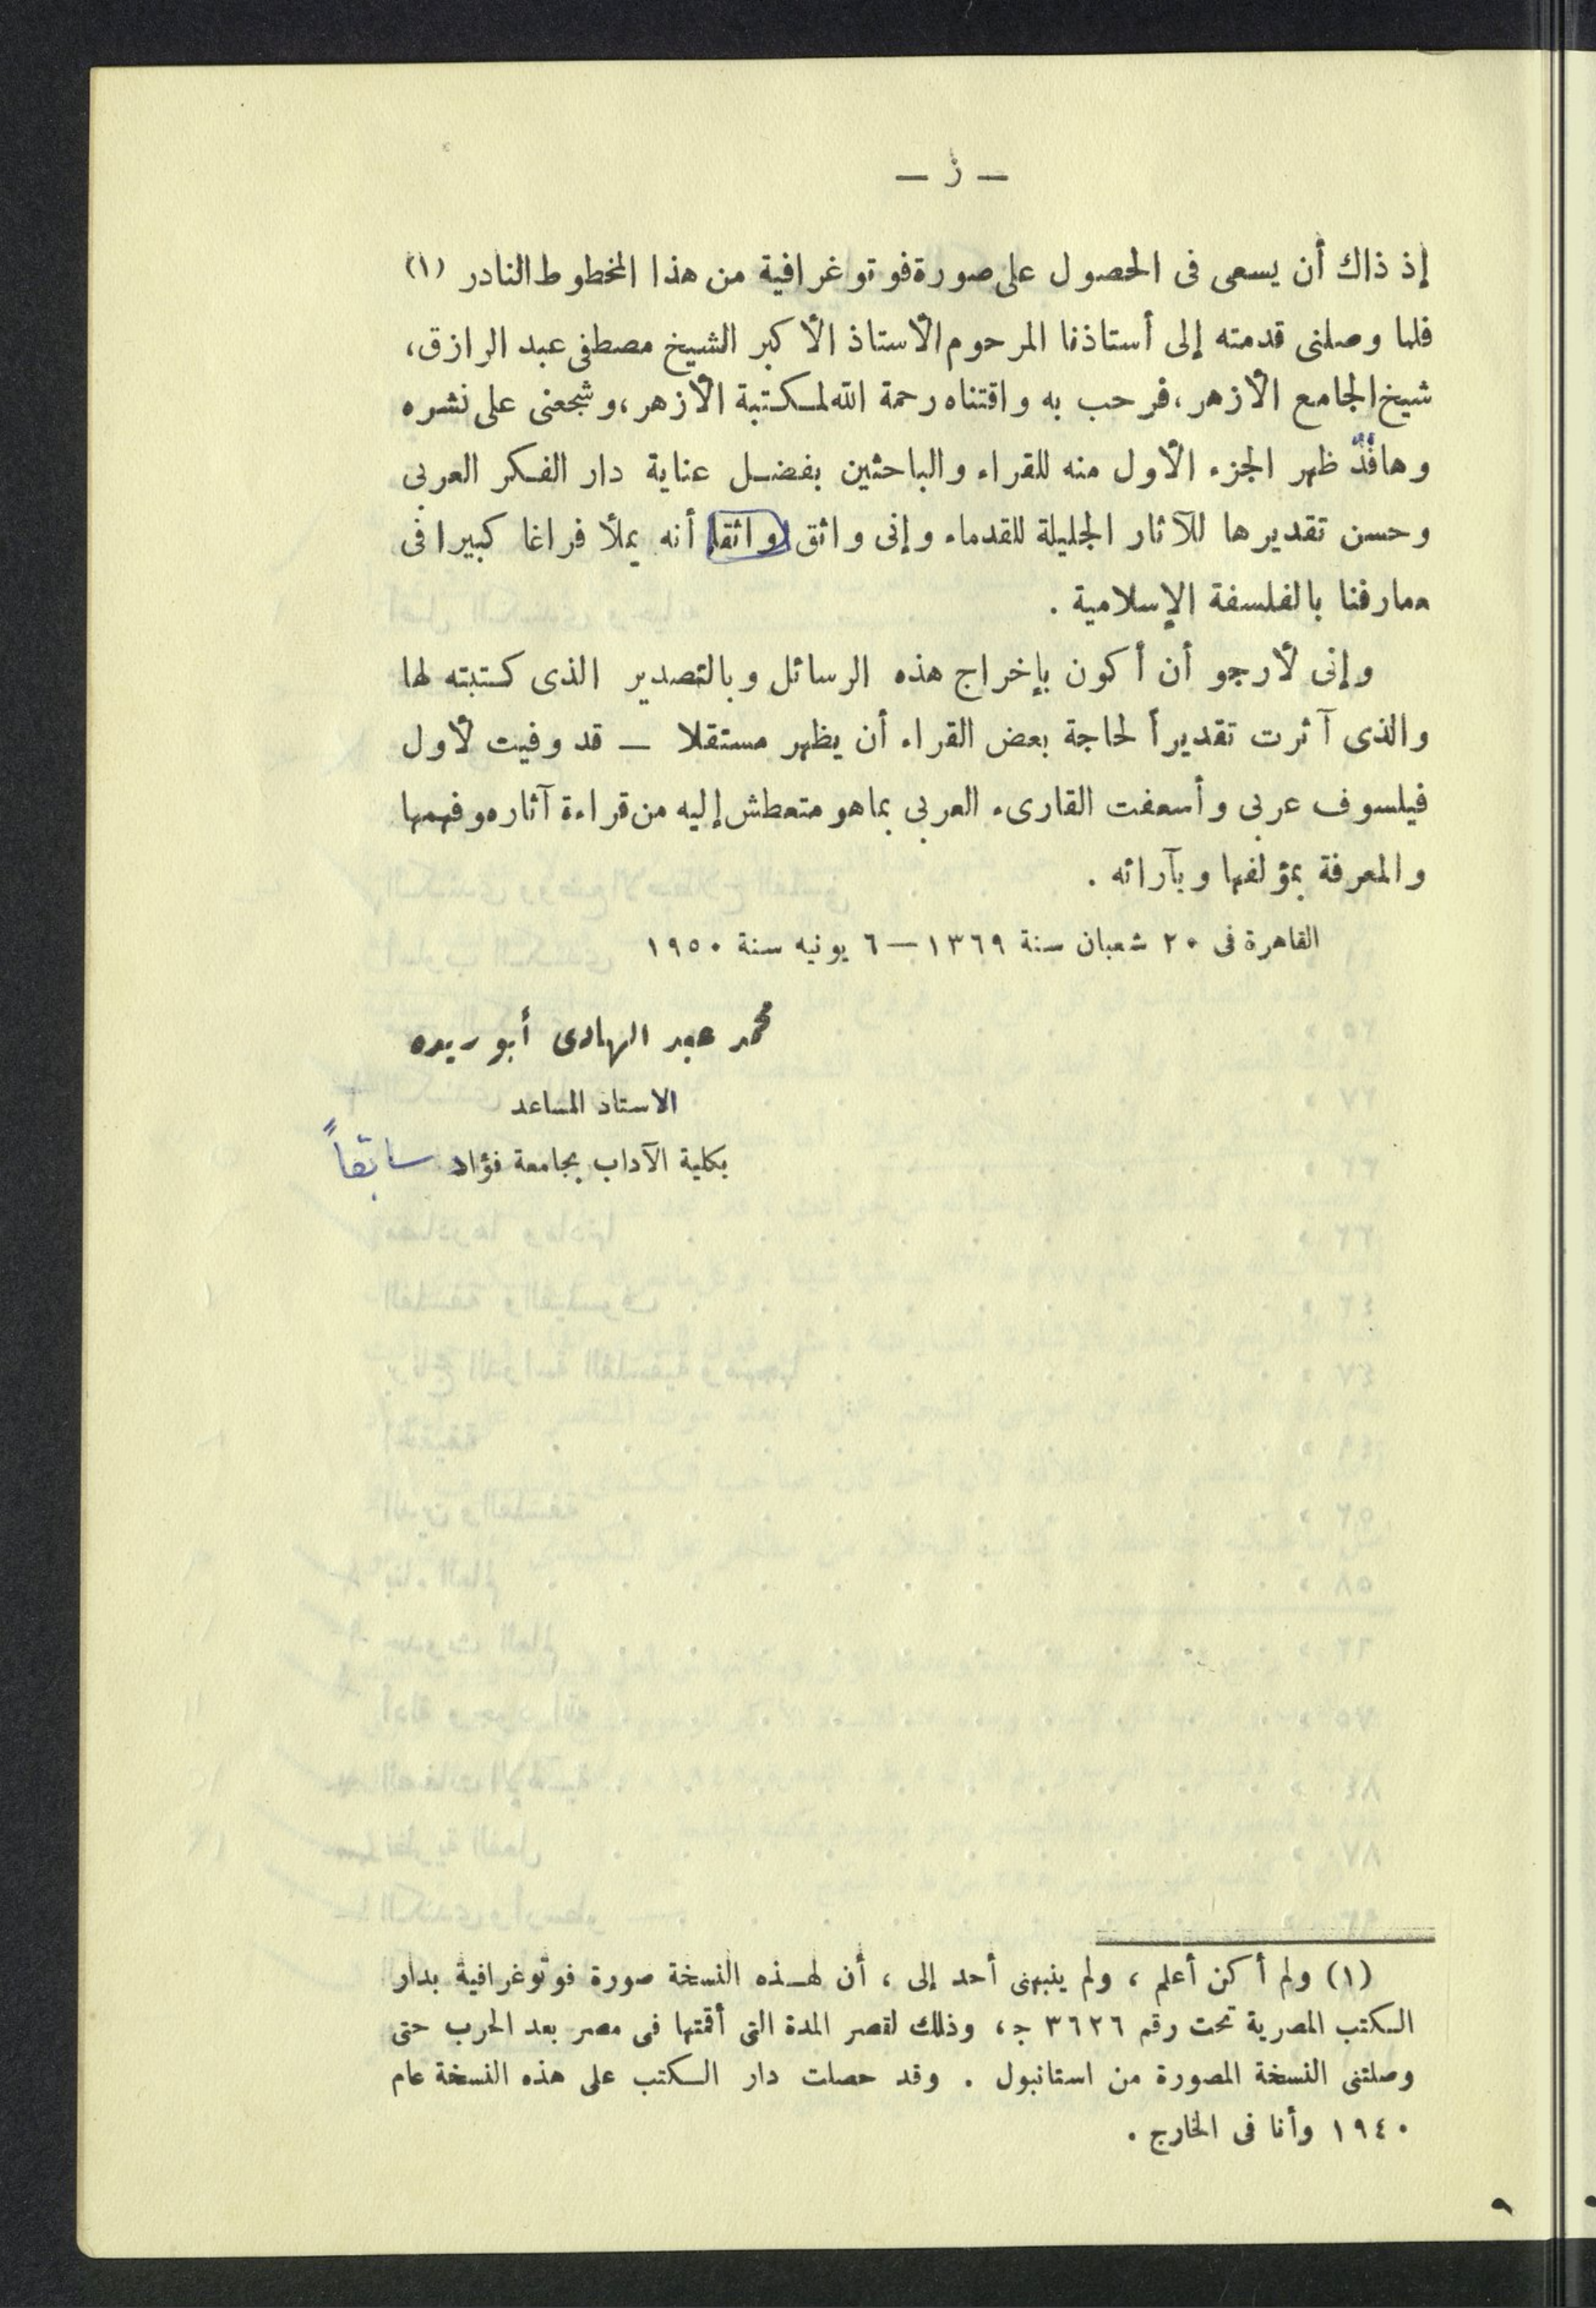 — ز —
إذ ذاك أن يسعى فى الحصول على صورة فوتوغرافية من هذا المخطوط النادر (١)
فلما وصلنى قدمته إلى أستاذنا المرحوم الأستاذ الأكبر الشيخ مصطفى عبد الرازق،
شيخ الجامع الأزهر، فرحب به واقتناه رحمة الله لمكتبة الأزهر، وشجعنى على نشره
وها قد ظهر الجزء الأول منه للقراء والباحثين بفضل عناية دار الفكر العربى
وحسن تقديرها للآثار الجليلة للقدماء وإنى واثق واثقا أنه يملأ فراغا كبيرا فى
معارفنا بالفلسفة الإسلامية .
وإنى لأرجو أن أكون بإخراج هذه الرسائل وبالتصدير الذى كتبته لها
والذى آثرت تقديرأ لحاجة بعض القراء أن يظهر مستقلا — قد وفيت لأول
فيلسوف عربى وأسعفت القارىء العربى بما هو متعطش إليه من قراءة آثاره وفهمها
والمعرفة بمؤلفها وبآرائه .
القاهرة فى ٢٠ شعبان سنة ١٣٦٩ — ٦ يونيه سنة ١٩٥٠
محمد عبد الهادى أبو ريده
الاستاذ المساعد
بكلية الآداب بجامعة فؤاد سابقاً
(١) ولم أكن أعلم ، ولم ينبهنى أحد إلى ، أن لهذه النسخة صورة فوتوغرافية بدار
الكتب المصرية تحت رقم ٣٦٢٦ ج، وذلك لقصر المدة التى أقمتها فى مصر بعد الحرب حتى
وصلتنى النسخة المصورة من استانبول . وقد حصلت دار الكتب على هذه النسخة عام
١٩٤٠ وأنا فى الخارج .